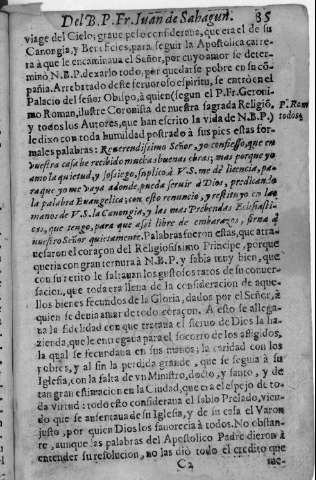 Del B. P. Fr. Iuan de Sahagun. 85
viage del Cielo, grave peso consideraba, que era el de su
Canongia, y Beneficios, para seguir la Apostolica carre
ra à que le encaminaua el Señor, por cuyo amor se deter-
minò N.B.P. dexarlo todo, por quedarse pobre en su cō-
pañia. Arrebatado deste feruoroso espiritu, se entrò en el
Palacio del señor Obispo, à quien (segun el P. Fr. Geroni-
mo Roman, ilustre Coronista de nuestra sagrada Religiō,
y todos los Autores, que han escrito la vida de N.B.P.)
P. Rom
todos
le dixo con toda humildad postrado à sus pies estas for-
males palabras: Reverendissimo Señor, yo confiesso, que en
vuestra casa he recibido muchas buenas obras; mas porque yo
amo la quietud, y sossiego, suplico à V.S. me dè licencia, pa-
ra que yo me vaya adonde pueda seruir à Dios, predicando
la palabra Evangelica; con esto renuncio, y restituyo en las
manos de V.S. la Canongia, y las mas Prebendas Eclesiasti-
cas, que tengo, para que assi libre de embarazos, sirua à
nuestro Señor quietamente. Palabras fueron estas, que atra-
uesaron el coraçon del Religiosissimo Principe, porque
queria con gran ternura à N.B.P. y sabia muy bien, que
con su retiro le faltauan los gustosos ratos de su conuer-
sacion, que toda era llena de la consideracion de aque-
llos bienes fecundos de la Gloria, dados por el Señor, à
quien se deuia amar de todo coraçon. A esto se allega-
ua la fidelidad con que trataua el sieruo de Dios la ha-
zienda, que le entregaua para el socorro de los afligidos,
la qual se fecundaua en sus manos; la caridad con los
pobres, y al fin la perdida grande, que se seguia à su
Iglesia, con la falta de vn Ministro, docto, y santo, y de
tan gran estimacion en la Ciudad, que era el espejo de to-
da virtud: todo esto consideraua el sabio Prelado, vien-
do que se ausentaua de su Iglesia, y de su casa el Varon
justo, por quien Dios los fauorecia à todos. No obstan-
te, aunque las palabras del Apostolico Padre dieron à
entender su resolucion, no las diò todo el credito que
C2 me-